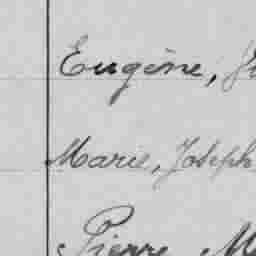 Eugène,
Marie, Joseph
Pierre